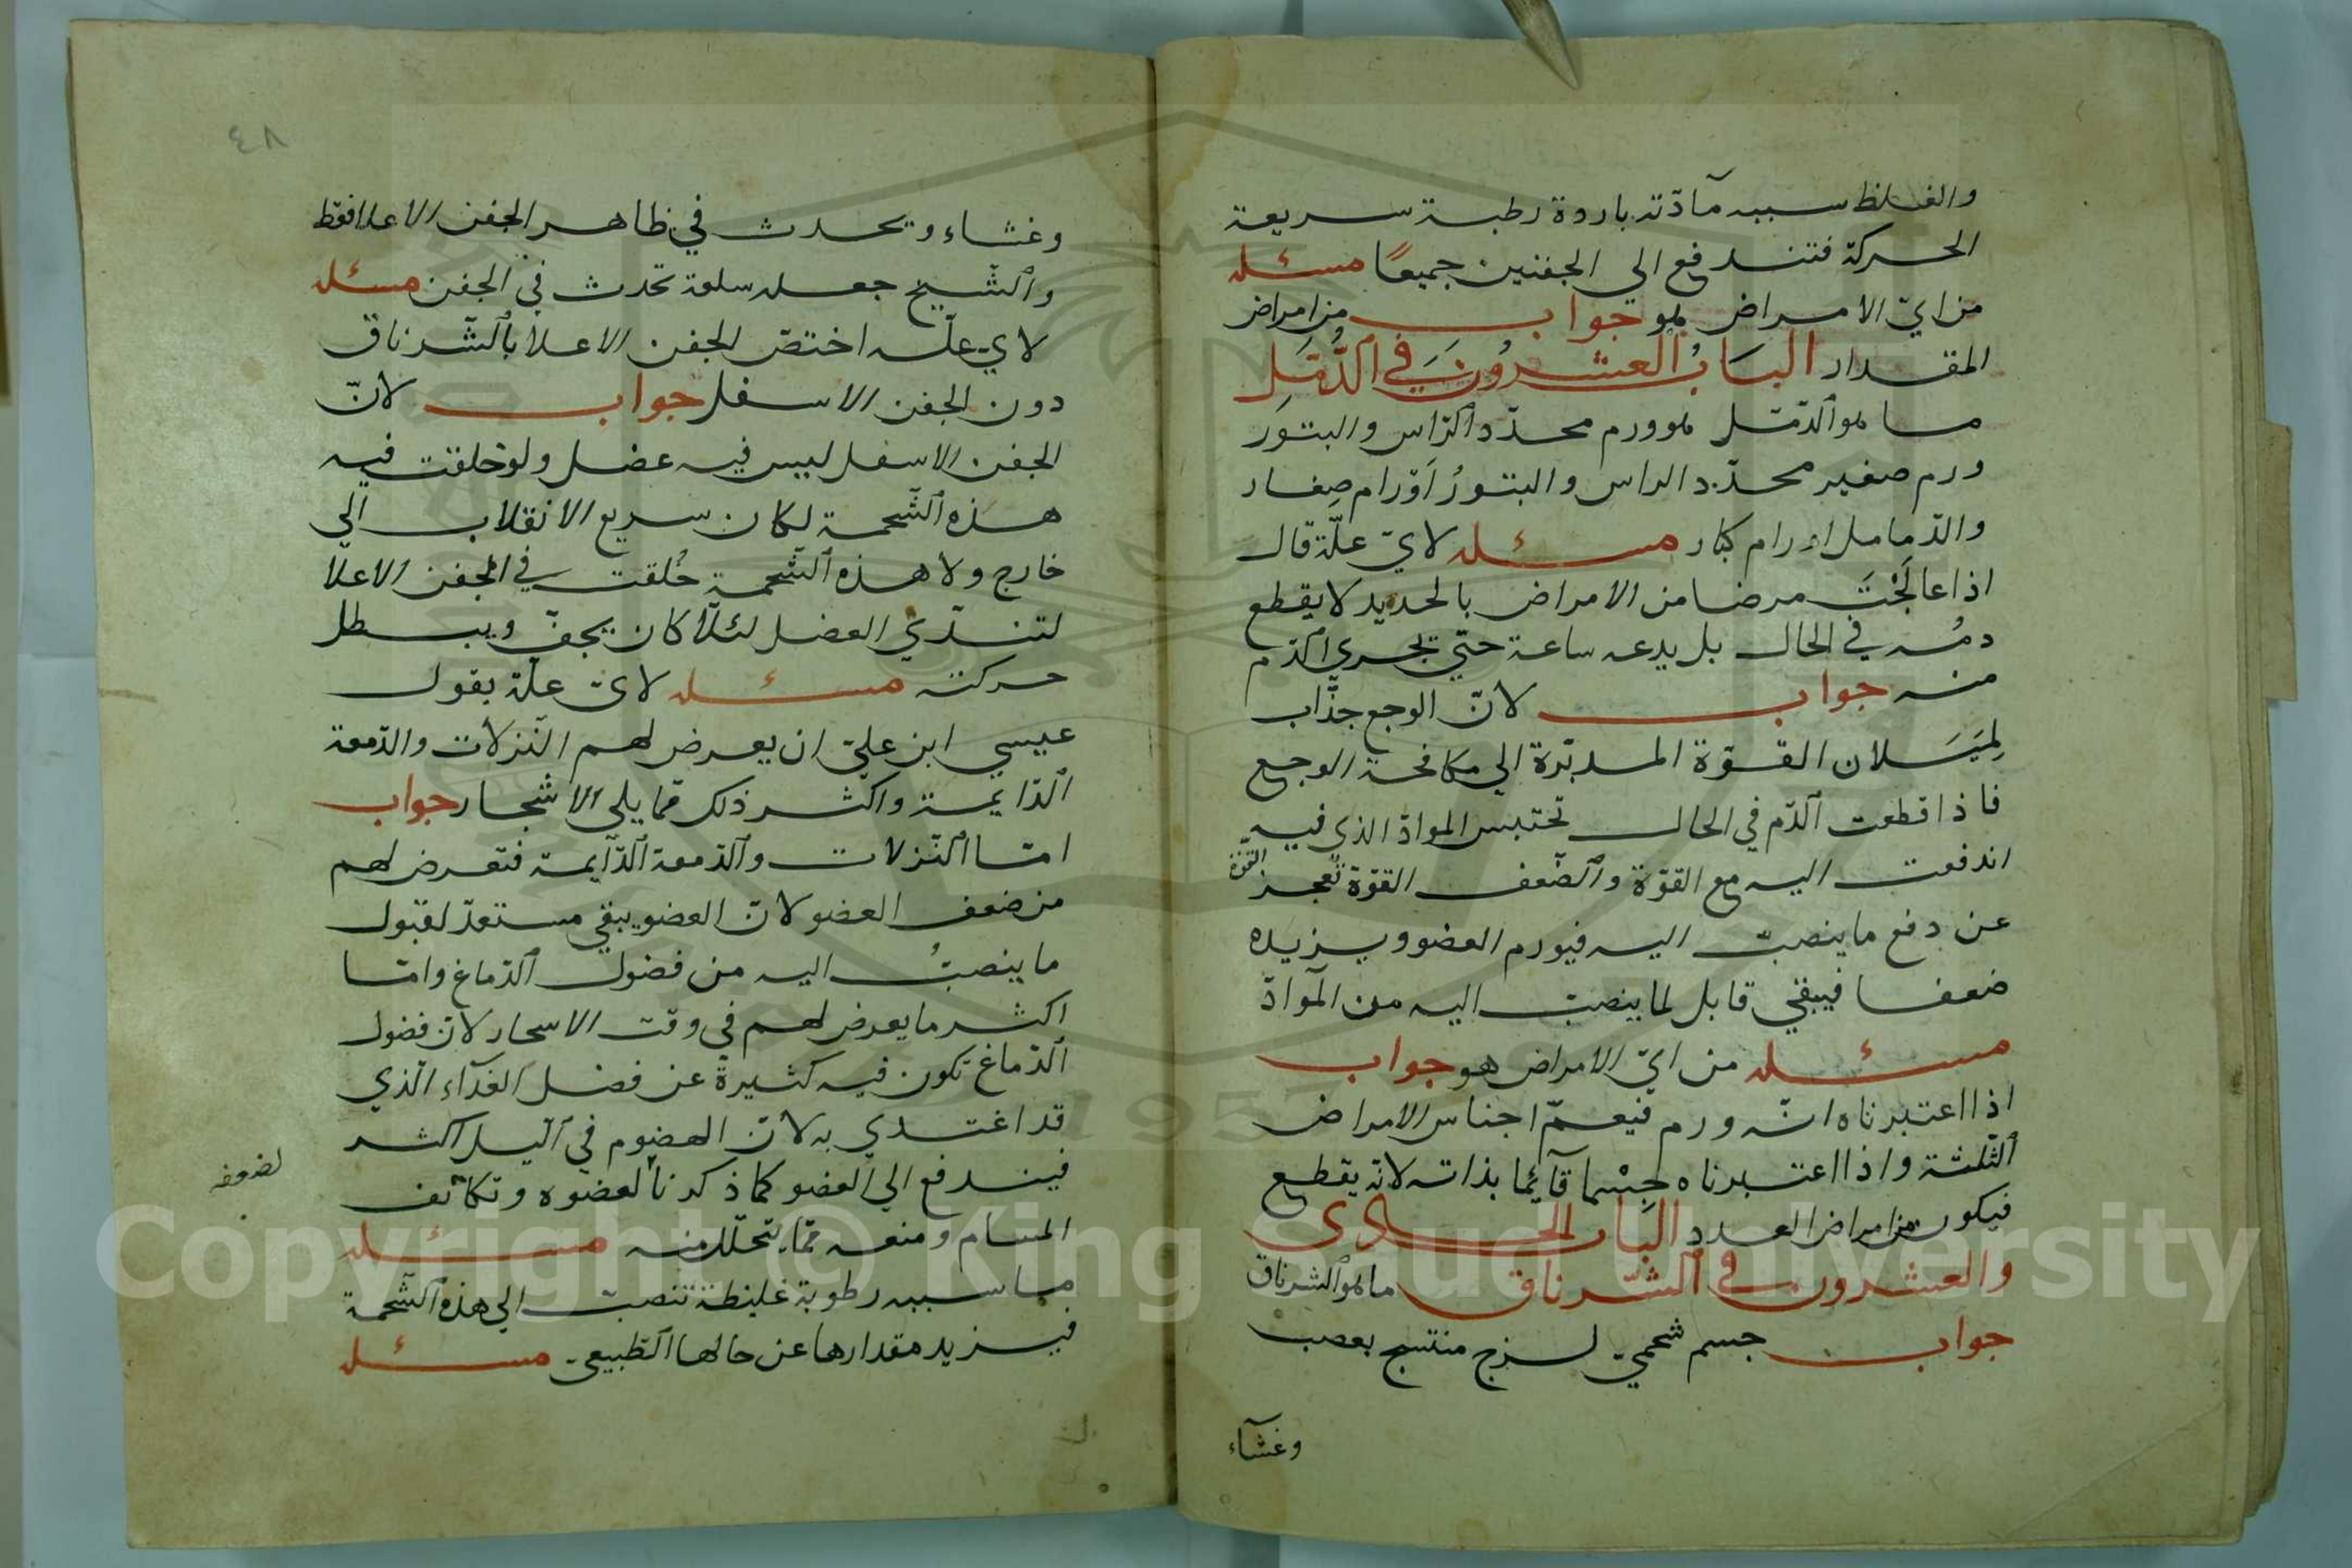 والغلظ سببه مآدّته باردة رطبة سريعة
الحركة فتندفع الي الجفنين جميعًا مسئله
من ايّ الامراض هو جواب من امراض
المقدار البَابُ العشرُونَ في الدُّمَّلِ
ما هو الدّمّل هو ورم محدّد الرّاس والبثور
ورم صغير محدّد الراس والبثورُ اَوْرام صِغار
والدّمامل اورام كبار مسئله لايّ علّة قال
اذا عالَجْتَ مرضا من الامراض بالحديد لا يقطع
دمُه في الحال بل يدعه ساعة حتّي تجري الدّم
منه جواب لانّ الوجع جذّاب
لِمَيَسَلان القوّة المدبّرة الي مكافحة الوجع
فاذا قطعت الدّم في الحال تحتبس الموادّ الذي فيه
اندفعت اليه مع القوّة والضّعف القوّة تعجز القوّة
عن دفع ما ينصبّ اليه فيورم العضو ويزيده
ضعفا فيبقي قابل لما ينصبّ اليه من الموآدّ
مسئله من ايّ الامراض هو جواب
اذا اعتبرناه انّه ورم فيعمّ اجناس الامراض
الثّلثة واذا اعتبرناه جِسْما قآئِما بذاته لانّه يقطع
فيكون من امراض العدد البَاب الحادى
والعشرون في الشّرناق ما هو الشرناق
جواب جسم شحميّ لزج منتسج بعصب
وغشآء
٤٨
وغشاء ويحدث في ظاهر الجفن الاعلا فقط
والشّيخ جعله سلعة تحدث في الجفن مسئله
لاي علّه اختصّ الجفن الاعلا بالشّرناق
دون الجفن الاسفل جواب لانّ
الجفن الاسفل ليس فيه عضل ولو خلقت فيه
هذه الشّحمة لكان سريع الانقلاب الي
خارج ولا هذه الشّحمة خُلقت في الجفن الاعلا
لتندّي العضل لئلّا كان يجفّ ويبطل
حركته مسئله لاىّ علّة يقول
عيسي ابن عليّ ان يعرض لهم النّزلات والدّمعة
الدّايمة واكثر ذلك مما يلي الاشجار جواب
امّا النّزلات والدّمعة الدّآيمة فتعرض لهم
من ضعف العضو لانّ العضو يبقي مستعدّ لقبول
ما ينصبُّ اليه من فضول الدّماغ وامّا
اكثر ما يعرض لهم فى وقت الاسحار لانّ فضول
الدّماغ تكون فيه كثيرةً عن فضل الغدآء الّذي
قد اغتدي به لانّ الهضوم في اللّيل اكثر
فيندفع الي العضو كما ذكرنا لعضوه وتكاثف
لضعفه
المسام ومنعه ممّا يتحلّل منه مسئله
ما سببه رطوبة غليظة تنصبّ الي هذه الشّحمة
فيزيد مقدارها عن حالها الطّبيعى مسئله
Copyright © King Saud University
1957